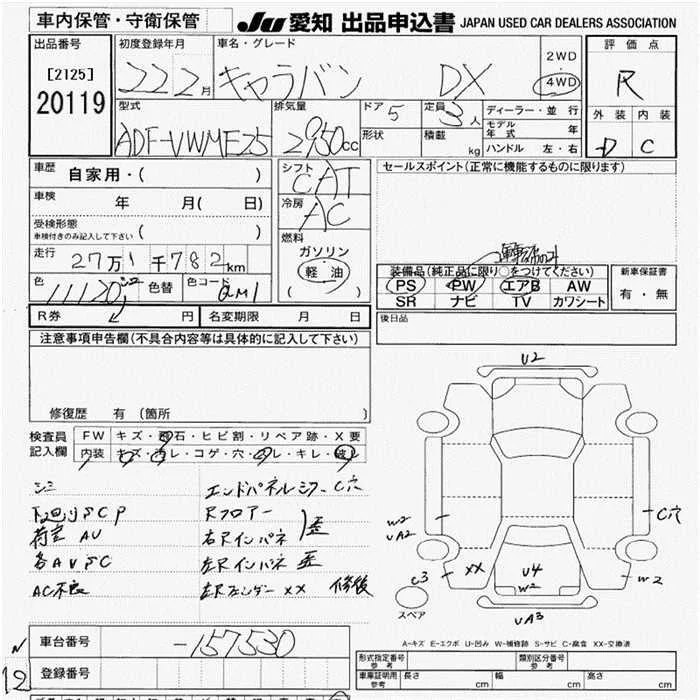 車内保管・守衛保管
JU 愛知 出品申込書 JAPAN USED CAR DEALERS ASSOCIATION
出品番号 初度登録年月 車名・グレード 2WD 評価点
[2125] 22 2月 キャラバン DX 4WD R
20119 型式 排気量 ドア 5 定員 3人 ディーラー・並行 外装 内装
モデル年式 年
ADF-VWME25 2950cc 形状 積載 kg ハンドル 左・右 D C
車歴 自家用・( ) シフト CAT セールスポイント(正常に機能するものに限ります)
車検 年 月( 日) 冷房 AC
受検形態
車検付きのみ記入して下さい ( )
燃料
走行 27万1千782km ガソリン
軽油
( )
装備品(純正品に限り○をつけてください) 新車保証書
色 色替 色コード QM1 PS PW エアB AW 有・無
SR ナビ TV カワシート
R券 円 名変期限 月 日 後日品
注意事項申告欄(不具合内容等は具体的に記入して下さい)
U2
修復歴 有 (箇所 )
検査員 FW キズ・飛石・ヒビ割・リペア跡・X要
記入欄 内装 キズ・ヨゴレ・コゲ・穴・スレ・キレ・破レ
シミ エンドパネルシワ・C穴
下廻りSCP Rフロアー
荷室AU 右Rインパネ 歪
各AUSC 左Rインパネ 歪
AC不良 左Rフェンダーxx 修復
W2
UA2
C穴
C3 XX U4 W2 W2
スペア UA3
A-キズ E-エクボ U-凹み W-補修跡 S-サビ C-腐食 XX-交換済
N 車台番号 -157530
12 登録番号
型式指定番号 参考 類別区分番号 参考
車庫証明用 参考 長さ cm 幅 cm 高さ cm